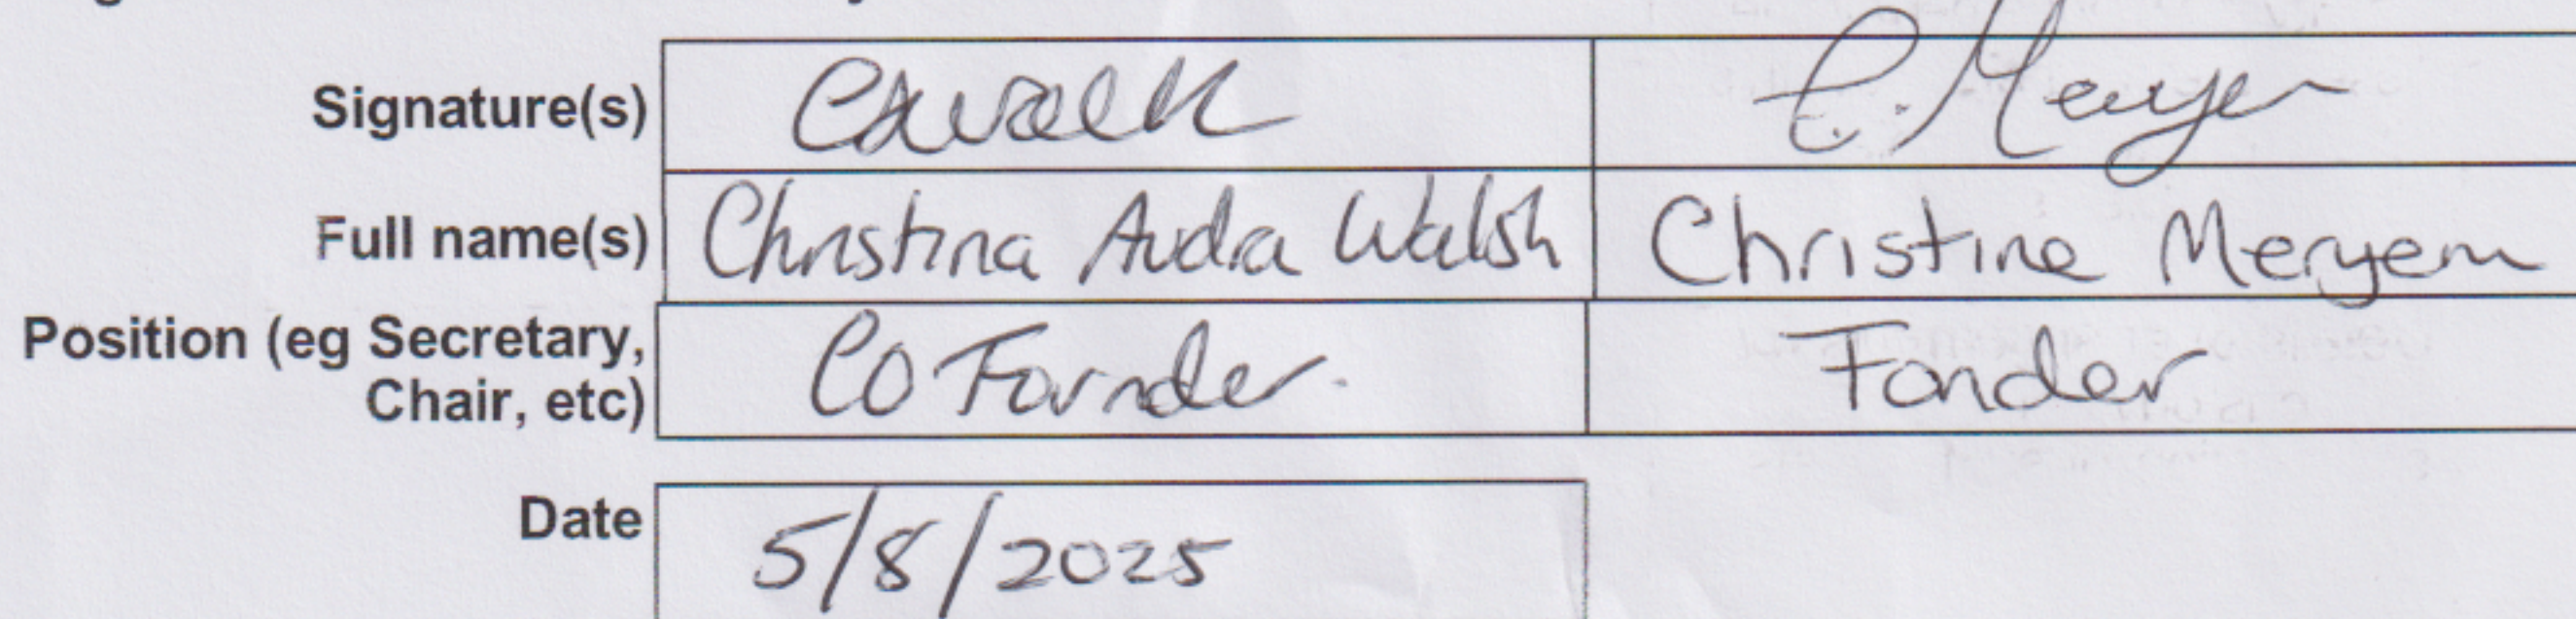 Signature(s) C. Meryem
Full name(s) Christina Audra Walsh Christine Meryem
Position (eg Secretary, Chair, etc) CO Founder. Fonder
Date 5/8/2025